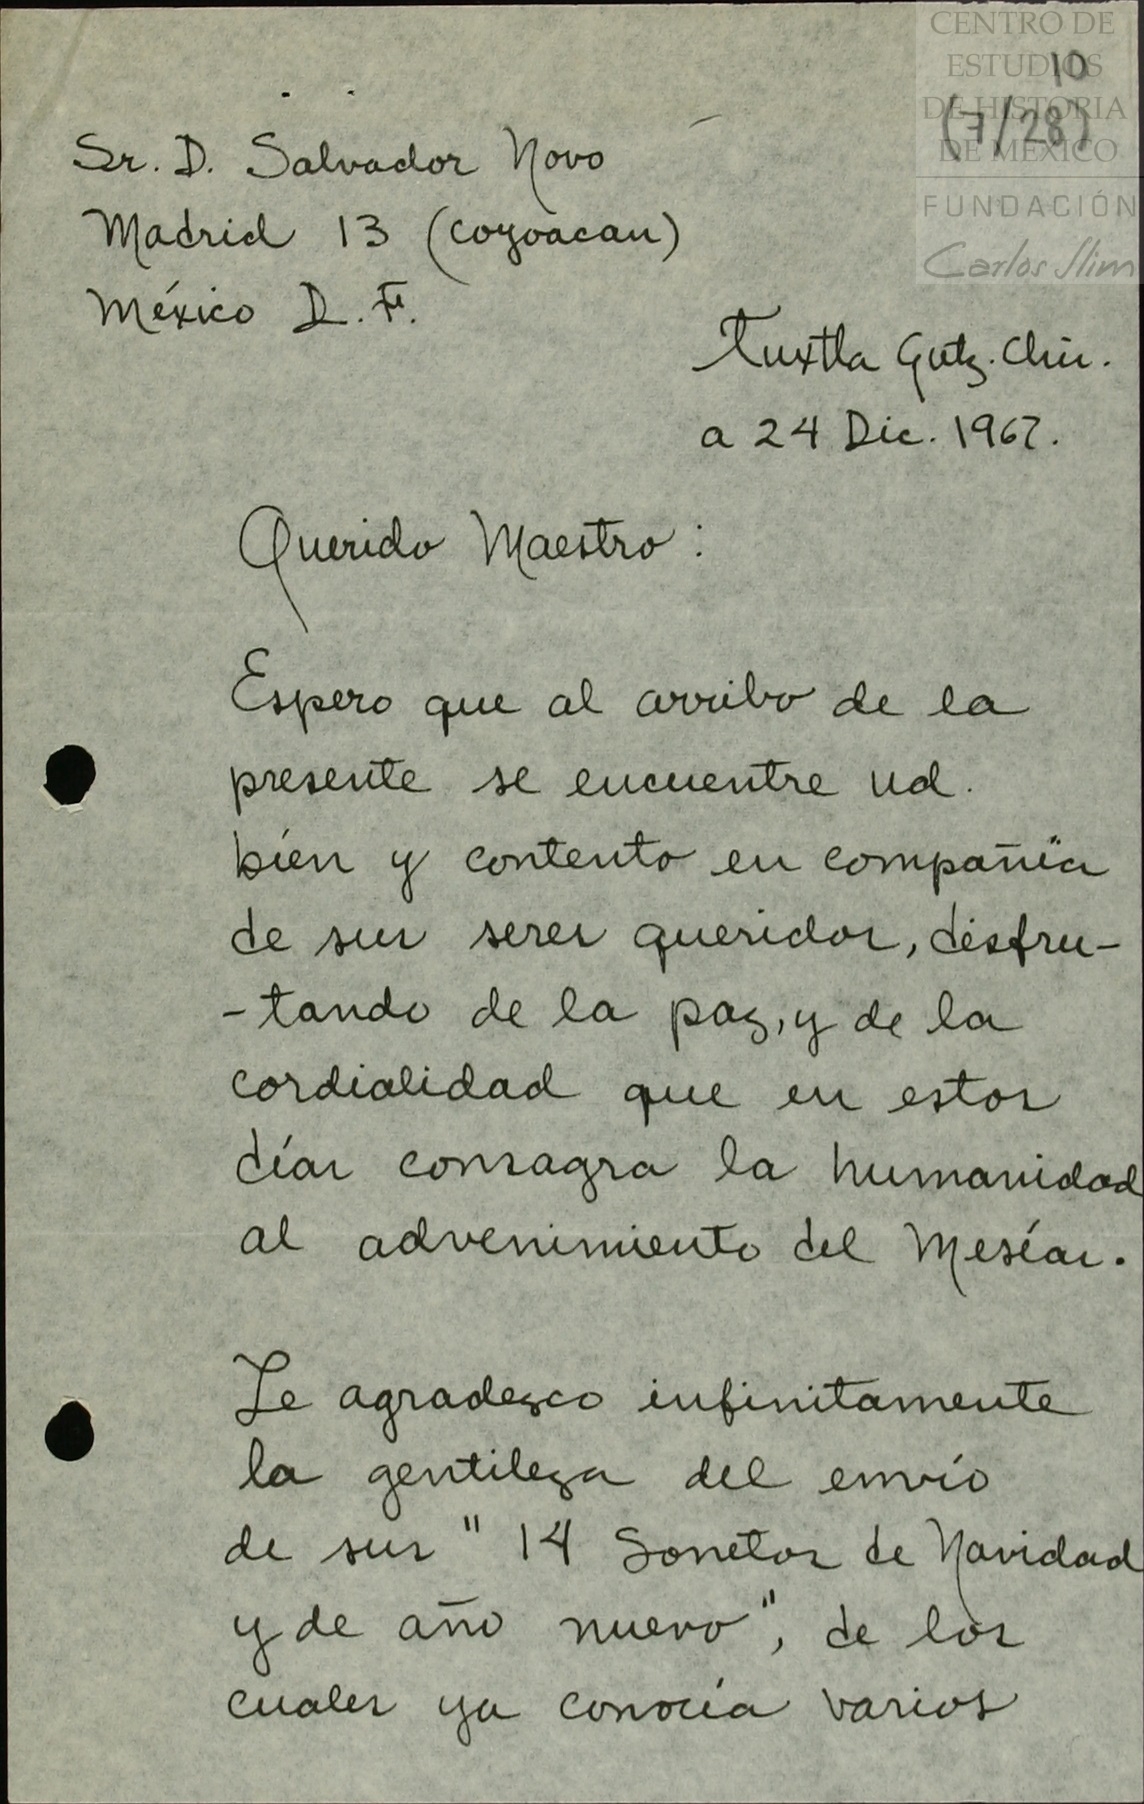 CENTRO DE
ESTUDIOS
DE HISTORIA
DE MÉXICO
FUNDACIÓN
Carlos Slim
10
(7/28)
Sr. D. Salvador Novo
Madrid 13 (Coyoacan)
México D. F.
Tuxtla Gutz. Chis.
a 24 Dic. 1967.
Querido Maestro:
Espero que al arribo de la
presente se encuentre ud.
bíen y contento en compañía
de sus seres queridos, disfru-
-tando de la paz, y de la
cordialidad que en estos
días consagra la humanidad
al advenimiento del Mesías.
Le agradezco infinitamente
la gentileza del envío
de sus "14 Sonetos de Navidad
y de año nuevo", de los
cuales ya conocía varios